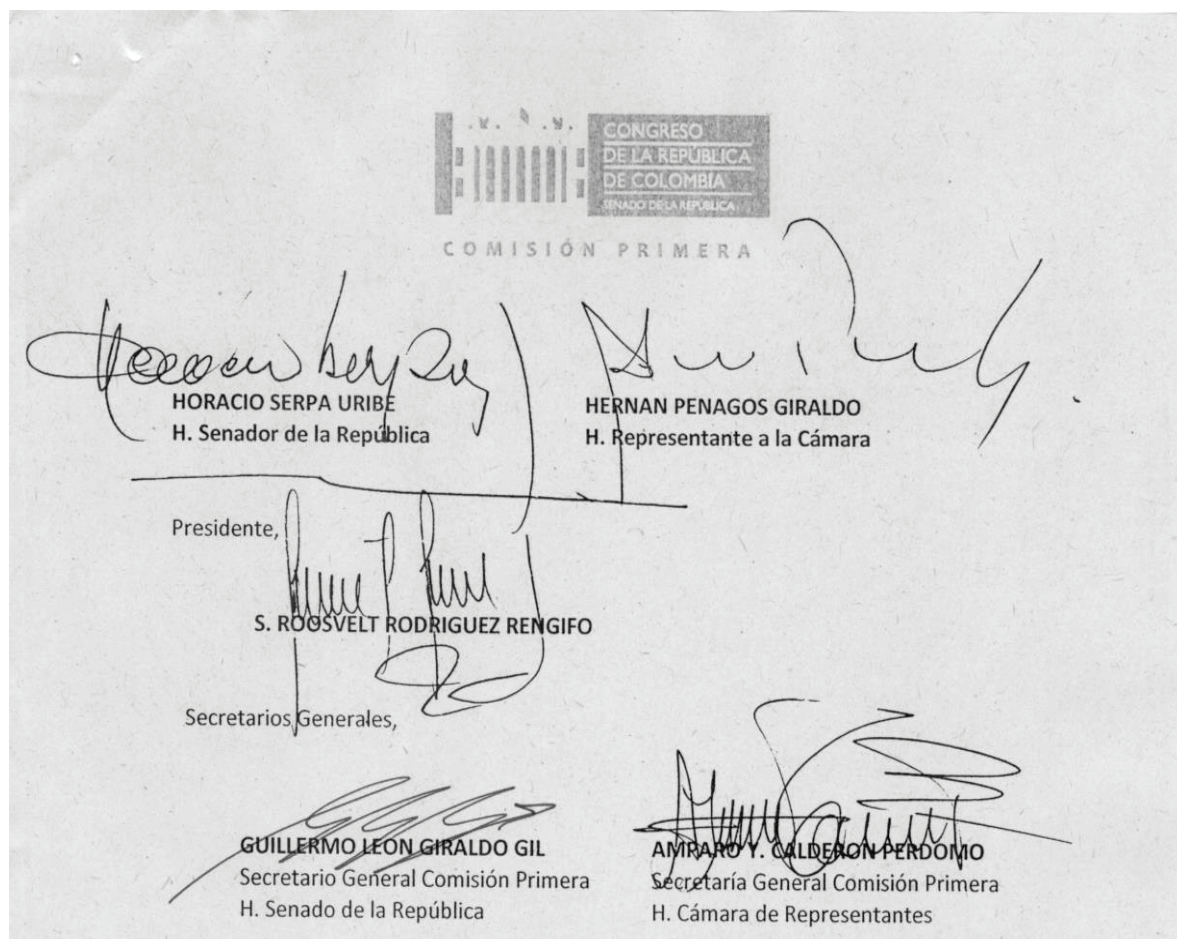 CONGRESO
DE LA REPÚBLICA
DE COLOMBIA
SENADO DE LA REPÚBLICA
COMISIÓN PRIMERA
HORACIO SERPA URIBE
H. Senador de la República
HERNAN PENAGOS GIRALDO
H. Representante a la Cámara
Presidente,
S. ROOSVELT RODRIGUEZ RENGIFO
Secretarios Generales,
GUILLERMO LEON GIRALDO GIL
Secretario General Comisión Primera
H. Senado de la República
AMPARO Y. CALDERON PERDOMO
Secretaría General Comisión Primera
H. Cámara de Representantes